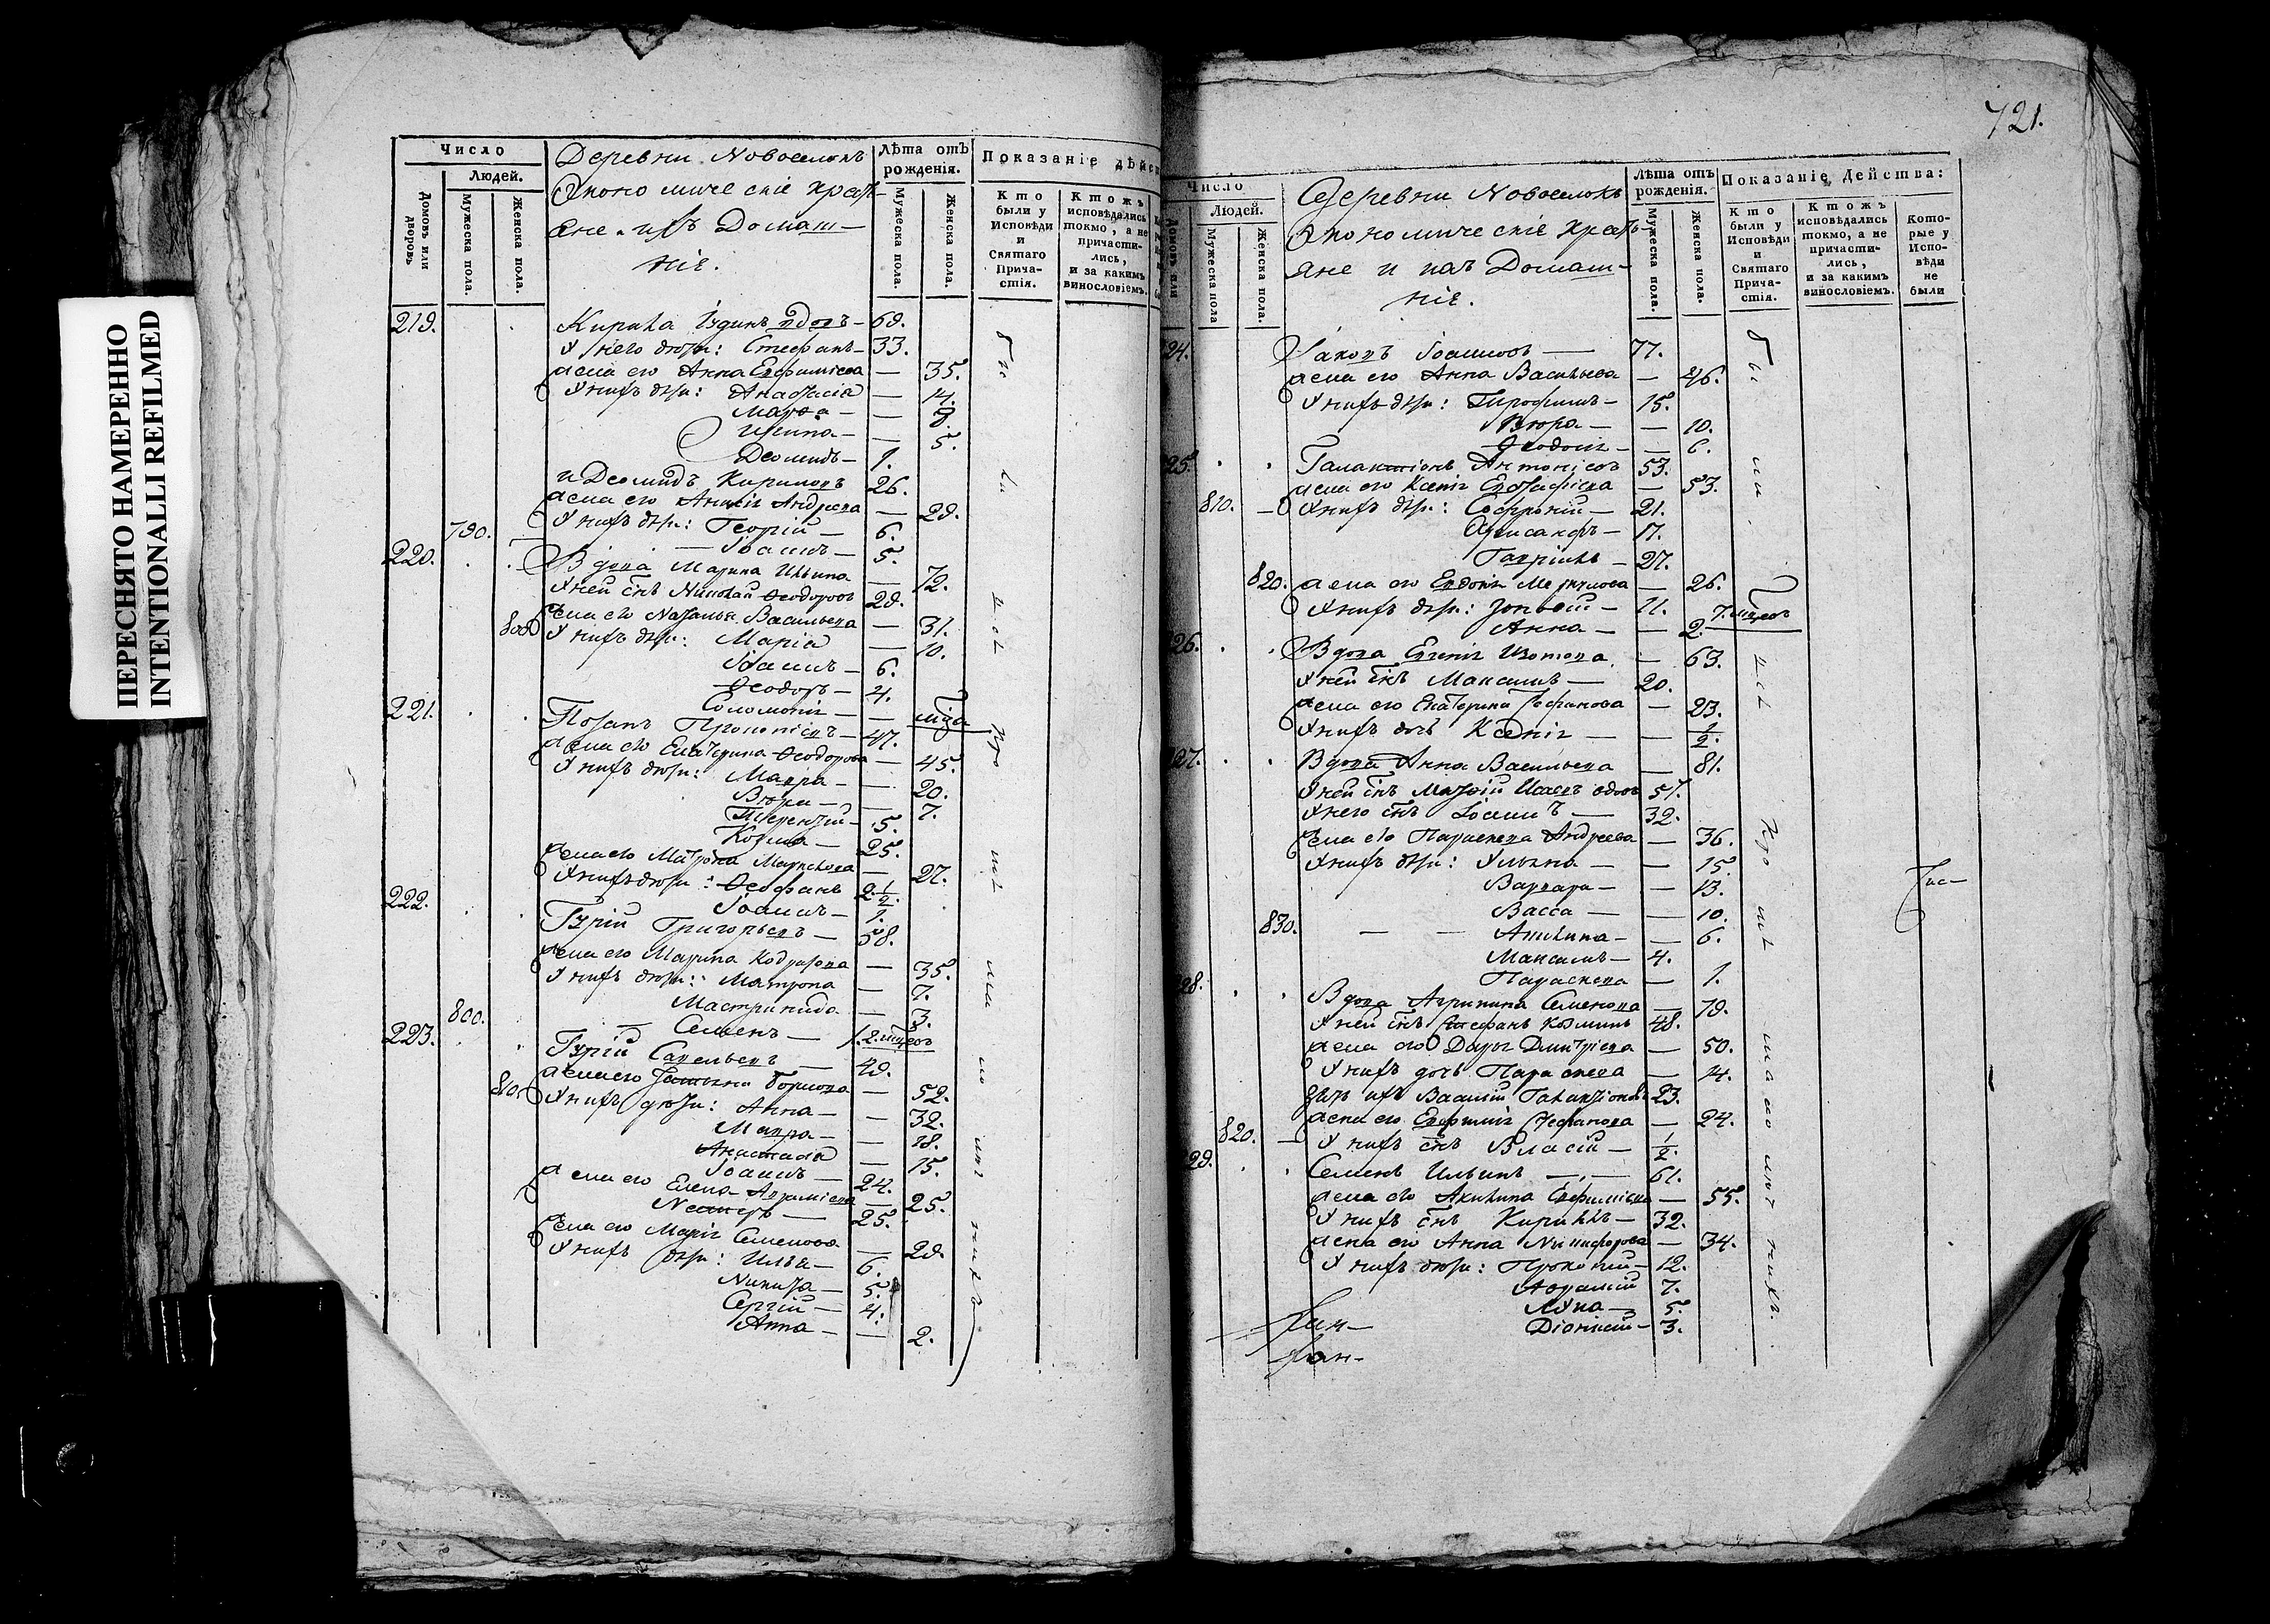 ПЕРЕСНЯТО НАМЕРЕННО
INTENTIONALLI REFILMED
Число
Людей.
Домовъ или дворовъ
Мужеска пола.
Женска пола.
Деревни Новоселокъ
Экономическіе крест-
яне и ихъ Домаш-
ніе.
Лѣта отъ рожденія.
Мужеска пола.
Женска пола.
Показаніе дѣйс
Кто были у Исповѣди и Святаго Прича-стія.
Ктожъ исповѣдались токмо, а не причасти-лись, и за какимъ винословіемъ.
219. Кирила вдовъ - 69.
У него дѣти: Стефанъ - 33.
жена его Анна Евфиміева - 35.
У нихъ дѣти: Анастасіа - 14.
Марѳа -
Ирина - 5.
Деомидъ - 1.
и Деомидъ Кириловъ 26.
жена его Андреева - 29.
790. У нихъ дѣти: Георгій - 6.
Іоаннъ - 5.
220. Вдова Марина Ильина - 72.
У ней снъ Николай Ѳеодоровъ 29.
жена его Наталья Васильева - 31.
800 У нихъ дѣти: Маріа - 10.
Іоаннъ - 6.
Ѳеодоръ - 4.
Соломоніа -
221. Потапъ Прокопіевъ - 47.
жена его Екатерина Ѳеодорова - 45.
У нихъ дѣти: Мавра - 20.
Вѣра - 7.
Терентій - 5.
Козма - 25.
жена его Матрона - 27.
У нихъ дѣти: Ѳеофанъ 2 1/2.
Іоаннъ - 1.
222. Гурій Григорьевъ - 58.
жена его Марина Кодратова - 35.
У нихъ дѣти: Матрона - 7.
Мастридида - 3.
800. Семенъ -
223. Гурій Савельевъ - 49.
жена его Татьяна - 52.
810. У нихъ дѣти: Анна - 32.
Мавра - 18.
Анастасіа - 15.
Іоаннъ - 24.
жена его Елена Авраміева 25.
Несторъ - 25.
жена его Маріа Семенова - 29.
У нихъ дѣти: Илья - 6.
Никита - 5.
Сергій - 4.
Анна - 2.
бы
ли
у сея
про
ше
ша
го
лѣт
нихъ
721.
Число
Людей.
Домовъ или
Мужеска пола
Женска пола.
Деревни Новоселокъ
Экономическіе крестъ-
яне и ихъ Домаш-
ніе.
Лѣта отъ рожденія.
Мужеска пола.
Женска пола.
Показаніе Действа:
Кто были у Исповѣди и Святаго Прича-стія.
Ктожъ исповѣдались токмо, а не причасти-лись, и за какимъ винословіемъ.
Кото-рые у Испо-вѣди не были
24. Іаковъ Іоанновъ - 77.
жена его Анна Васильева - 46.
У нихъ дѣти: Трофимъ - 15.
Вѣра - 10.
Ѳеодосіа - 6.
25. Галактіонъ Антоніевъ 53.
жена его Ксеніа Евстафіева - 53.
810. У нихъ дѣти: Софроній - 21.
Александръ - 17.
Гавріилъ - 27.
820. жена его Евдокіа Меркулова - 26.
У нихъ дѣти: - 11.
Анна - 2.
26. Вдова Евгеніа Изотова - 63.
У ней снъ Максимъ - 20.
жена его Екатерина Стефанова - 23.
У нихъ дочь Ксеніа - 1/2.
27. Вдова Анна Васильева - 81.
У ней снъ Матѳій Исаевъ вдовъ 57.
У него снъ Іоаннъ - 32.
жена его Параскева Андреева - 36.
У нихъ дѣти: Ульяна - 15.
Варвара - 13.
Васса - 10.
830. Акилина - 6.
Максимъ - 4.
Параскева - 1.
28. Вдова Агрипина Семенова - 79.
У ней снъ Стефанъ Козминъ 48.
жена его Дарьа Дмитріева - 50.
У нихъ дочь Параскева - 14.
Зять ихъ Василій Галактіоновъ 23.
жена его Евфиміа Стефанова - 24.
820. У нихъ снъ Власій - 1/2.
29. Семенъ Ильинъ - 61.
жена его Акилина Евфиміева - 55.
У нихъ снъ Кирилъ - 32.
жена его Анна Никифорова - 34.
У нихъ дѣти: Прокопій - 12.
Аврамій 7.
Лука - 5.
Діонисій - 3.
бы
ли
у сея
про
ше
ша
го
лѣт
нихъ.